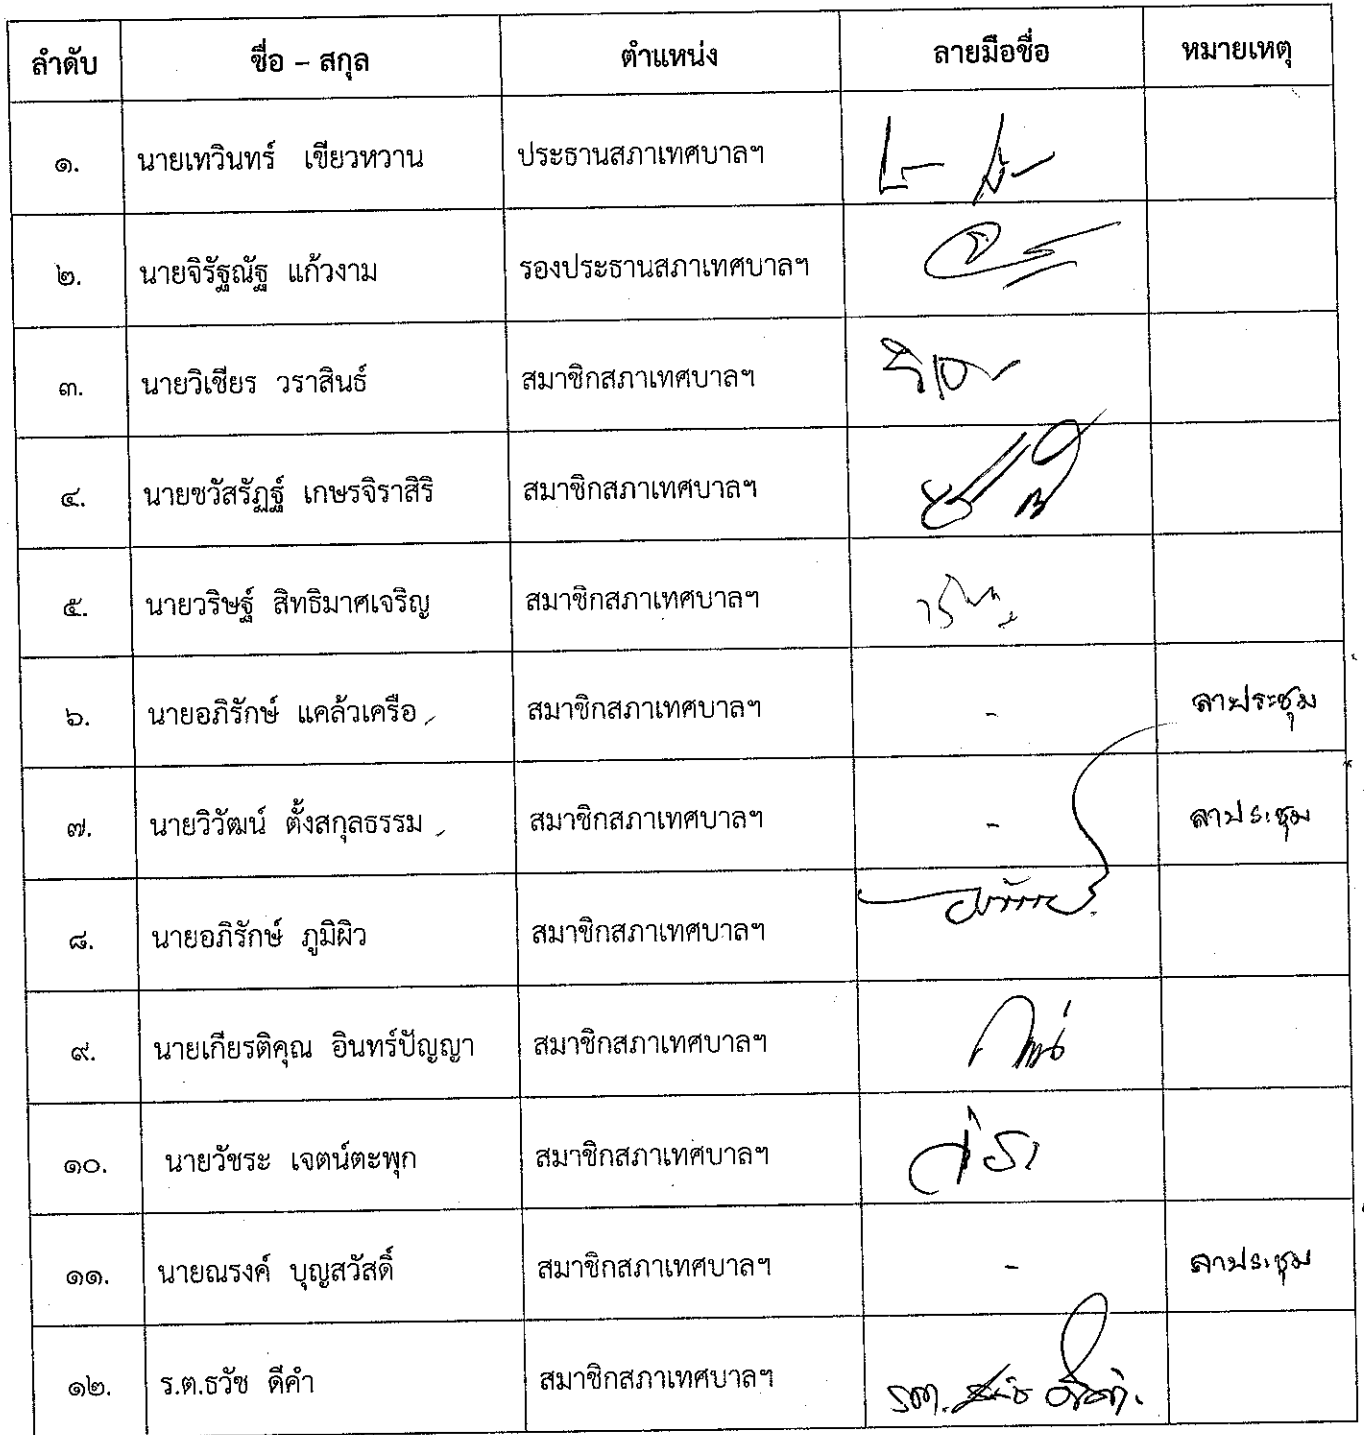 ลำดับ ชื่อ – สกุล ตำแหน่ง ลายมือชื่อ หมายเหตุ
๑. นายเทวินทร์ เขียวหวาน ประธานสภาเทศบาลฯ
๒. นายจิรัฐณัฐ แก้วงาม รองประธานสภาเทศบาลฯ
๓. นายวิเชียร วราสินธ์ สมาชิกสภาเทศบาลฯ
๔. นายชวัสรัฏฐ์ เกษรจิราสิริ สมาชิกสภาเทศบาลฯ
๕. นายวริษฐ์ สิทธิมาศเจริญ สมาชิกสภาเทศบาลฯ
๖. นายอภิรักษ์ แคล้วเครือ สมาชิกสภาเทศบาลฯ - ลาประชุม
๗. นายวิวัฒน์ ตั้งสกุลธรรม สมาชิกสภาเทศบาลฯ - ลาประชุม
๘. นายอภิรักษ์ ภูมิผิว สมาชิกสภาเทศบาลฯ
๙. นายเกียรติคุณ อินทร์ปัญญา สมาชิกสภาเทศบาลฯ
๑๐. นายวัชระ เจตน์ตะพุก สมาชิกสภาเทศบาลฯ
๑๑. นายณรงค์ บุญสวัสดิ์ สมาชิกสภาเทศบาลฯ - ลาประชุม
๑๒. ร.ต.ธวัช ดีคำ สมาชิกสภาเทศบาลฯ